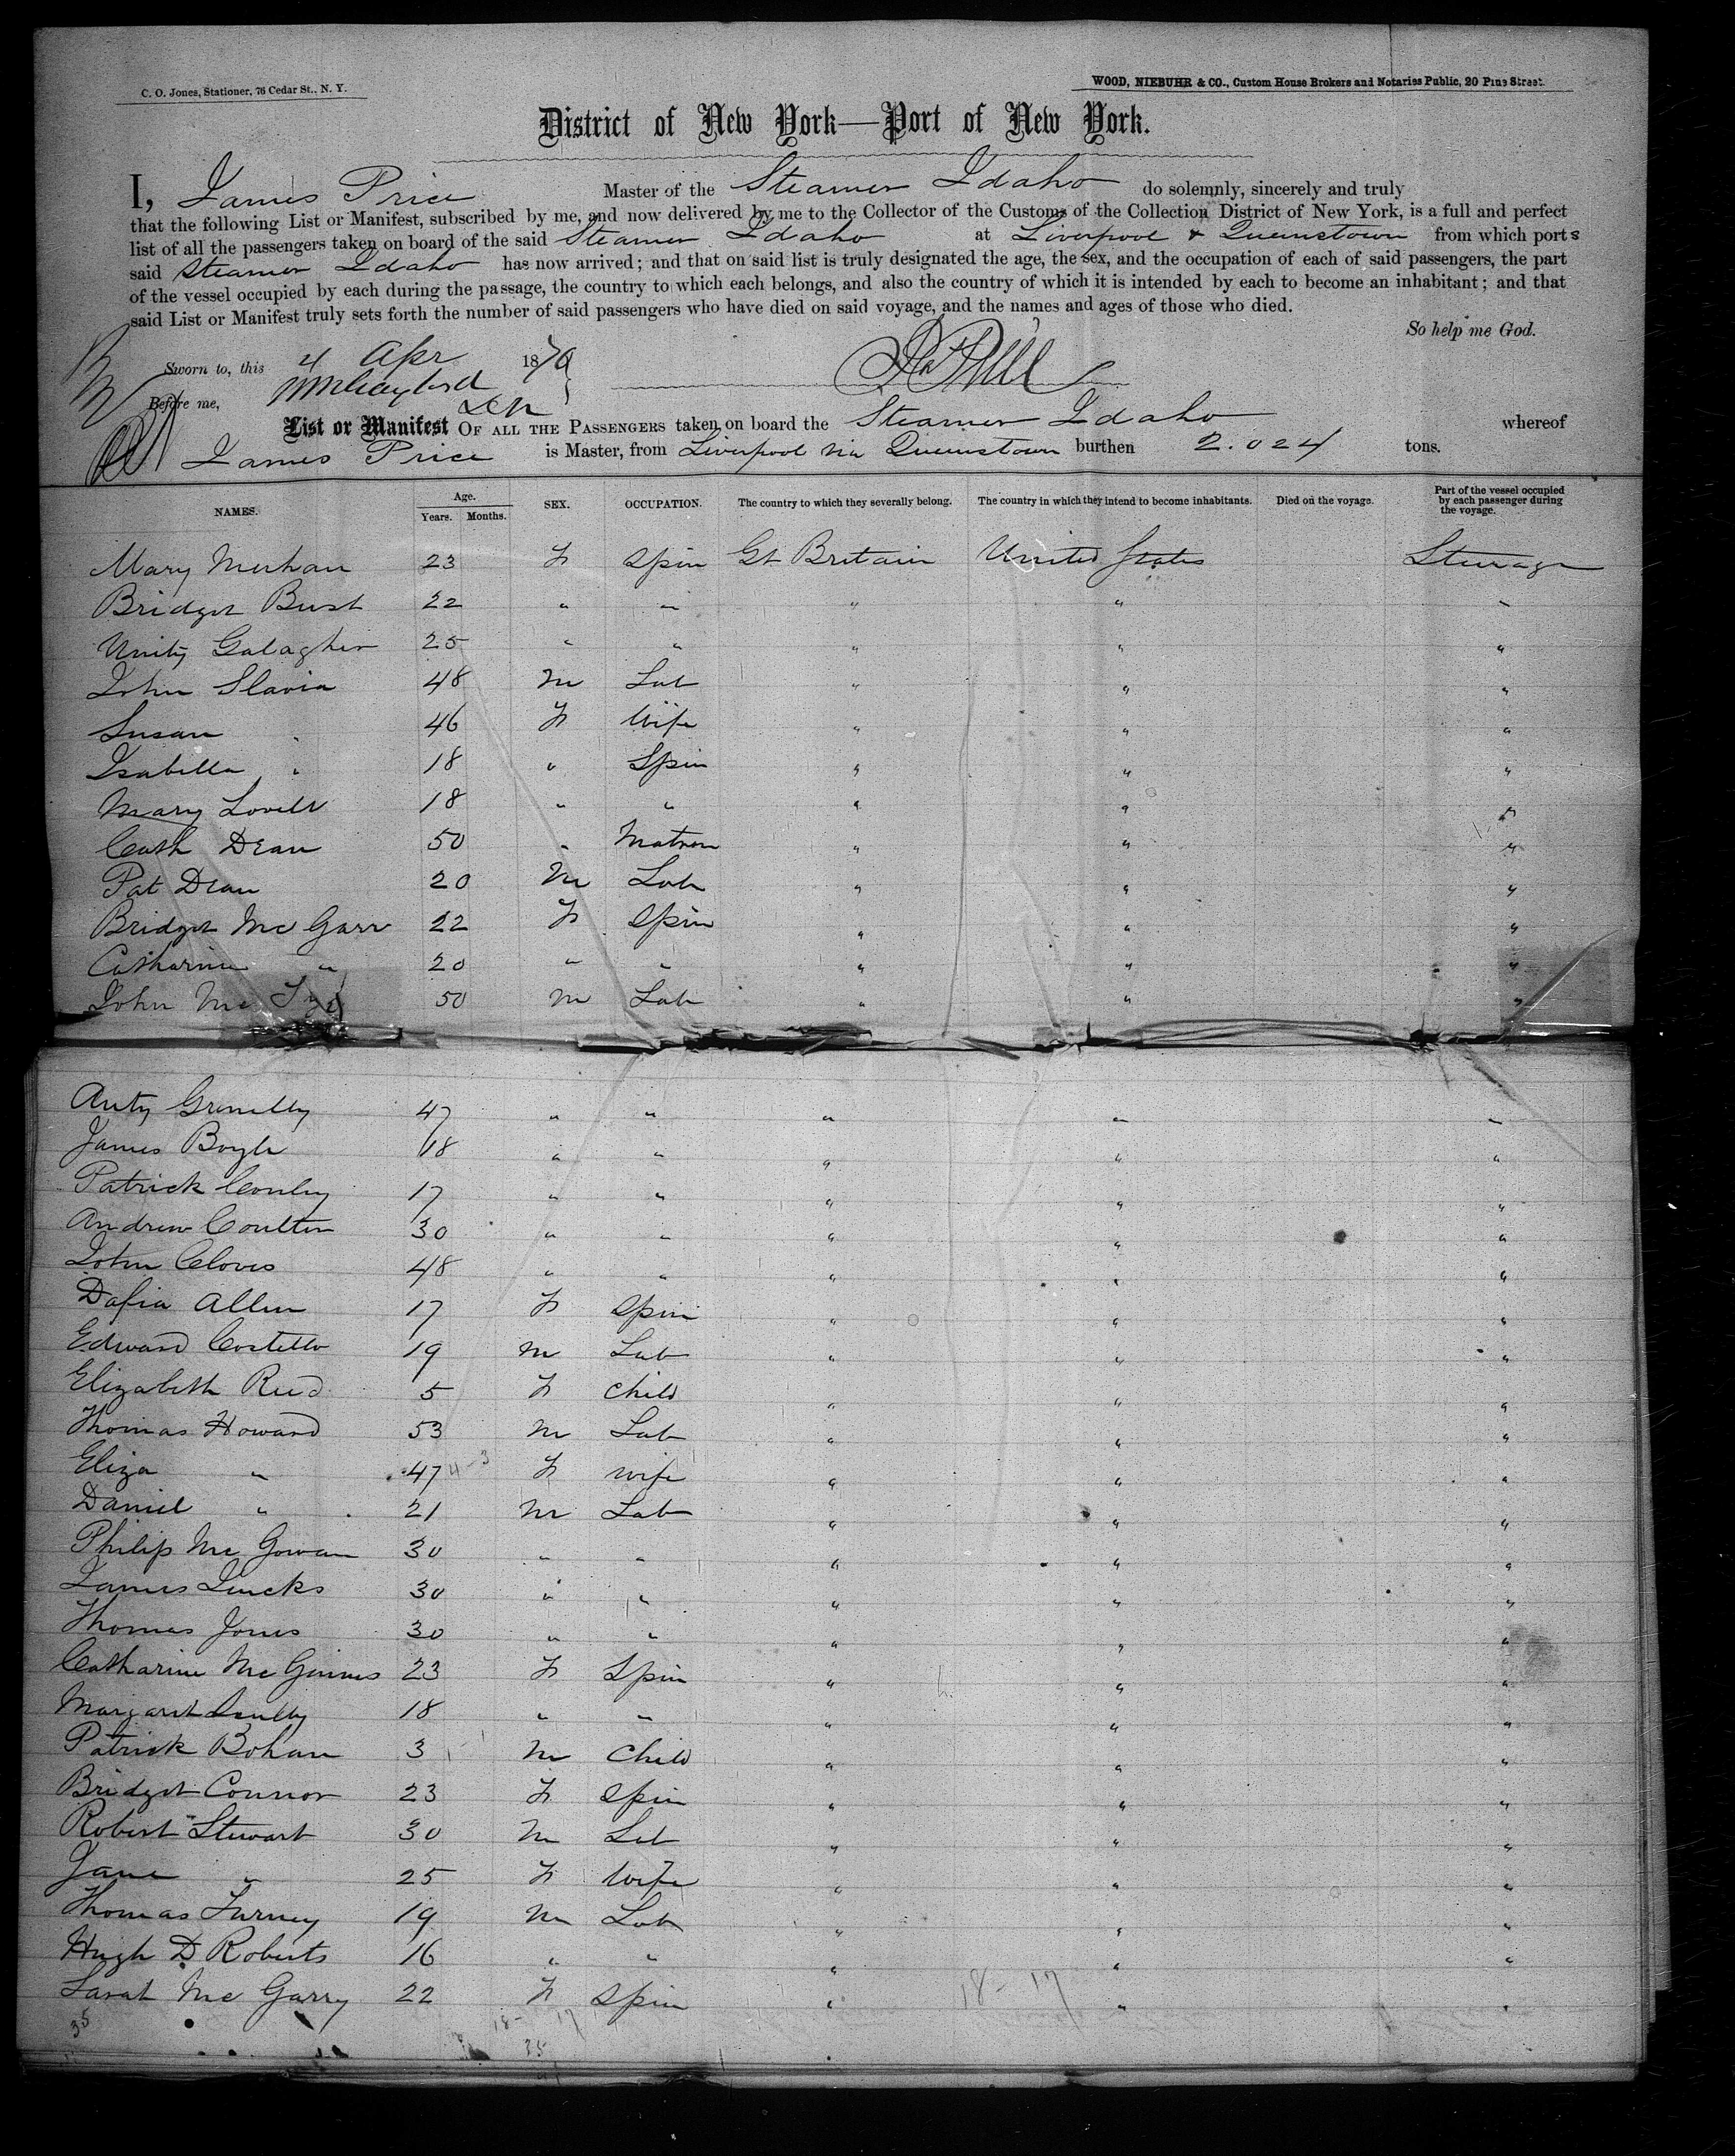 C. O. Jones, Stationer, 76 Cedar St., N. Y.
WOOD, NIEBUHR & CO., Custom House Brokers and Notaries Public, 20 Pine Street.
District of New York—Port of New York.
I, James Price Master of the Steamer Idaho do solemnly, sincerely and truly
that the following List or Manifest, subscribed by me, and now delivered by me to the Collector of the Customs of the Collection District of New York, is a full and perfect
list of all the passengers taken on board of the said Steamer Idaho at Liverpool & Queenstown from which ports
said Steamer Idaho has now arrived; and that on said list is truly designated the age, the sex, and the occupation of each of said passengers, the part
of the vessel occupied by each during the passage, the country to which each belongs, and also the country of which it is intended by each to become an inhabitant; and that
said List or Manifest truly sets forth the number of said passengers who have died on said voyage, and the names and ages of those who died.
So help me God.
Sworn to, this 4 Apr 1870
Before me,
List or Manifest OF ALL THE PASSENGERS taken on board the Steamer Idaho whereof
James Price is Master, from Liverpool via Queenstown burthen 2.024 tons.
NAMES. Age. Years. Months. SEX. OCCUPATION. The country to which they severally belong. The country in which they intend to become inhabitants. Died on the voyage. Part of the vessel occupied by each passenger during the voyage.
Mary Meehan 23 F Spin Gt Britain United States Steerage
Bridget 22 " " " " "
Unity Galagher 25 " " " " "
John Slavin 48 M Lab " " "
Susan " 46 F Wife " " "
Isabella " 18 " Spin " " "
Mary Lovett 18 " " " " "
Cath Dean 50 " Matron " " "
Pat Dean 20 M Lab " " "
Bridget Mc Garr 22 F Spin " " "
Catharine " 20 " " " " "
John Mc 50 M Lab " " "
Anty 47 " " " " "
James Boyle 18 " " " " "
Patrick Conley 17 " " " " "
Andrew Coulter 30 " " " " "
John Cloves 48 " " " " "
Dafia Allen 17 F Spin " " "
Edward Costello 19 M Lab " " "
Elizabeth Reed 5 F Child " " "
Thomas Howard 53 M Lab " " "
Eliza " 47 F Wife " " "
Daniel " 21 M Lab " " "
Philip Mc Gowan 30 " " " " "
James 30 " " " " "
Thomas Jones 30 " " " " "
Catharine Mc Ginnes 23 F Spin " " "
Margaret Scully 18 " " " " "
Patrick Bohan 3 M Child " " "
Bridget Connor 23 F Spin " " "
Robert Stewart 30 M Lab " " "
Jane " 25 F Wife " " "
Thomas Furney 19 M Lab " " "
Hugh D Roberts 16 " " " " "
Sarah Mc Garry 22 F Spin " " "
18-17
35 18-17
35